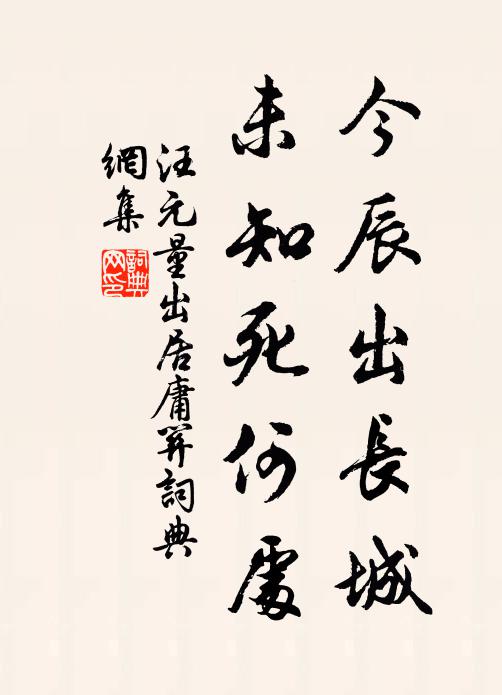 今辰出長城
未知死何處
汪元量出居庸關詞典
網集
詞典
网印